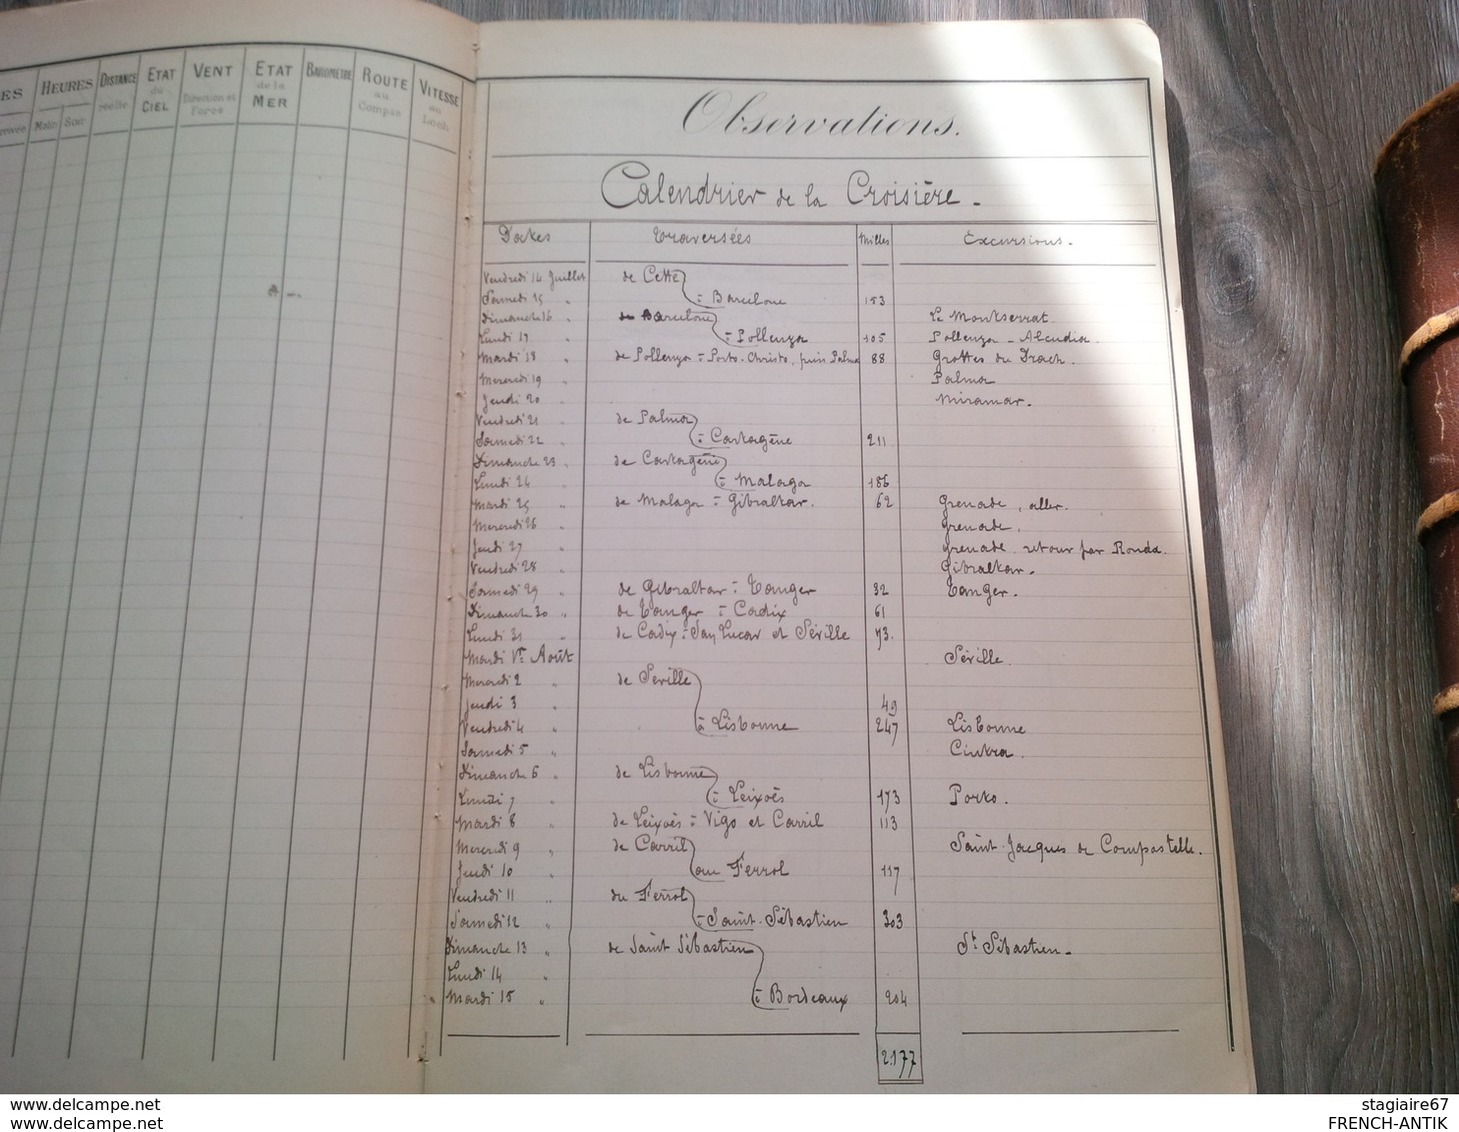 HEURES
DISTANCE
réelle
ETAT
du
CIEL
VENT
Direction et
Force
ETAT
de la
MER
BAROMÈTRE
ROUTE
au
Compas
VITESSE
au
Loch
Matin Soir
Observations.
Calendrier de la Croisière.
Dates Traversées Milles Excursions.
Vendredi 14 Juillet de Cette
Samedi 15 " à Barcelone 153
Dimanche 16 " de Barcelone Le Montserrat
Lundi 17 " à Pollenza 105 Pollenza - Alcudia.
Mardi 18 " de Pollenza à Porto-Christo, puis Palma 88 Grottes du Drach.
Mercredi 19 " Palma
Jeudi 20 " Miramar.
Vendredi 21 " de Palma
Samedi 22 " à Cartagène 211
Dimanche 23 " de Cartagène
Lundi 24 " à Malaga 186
Mardi 25 " de Malaga à Gibraltar. 62 Grenade, aller.
Mercredi 26 " Grenade.
Jeudi 27 " Grenade, retour par Ronda.
Vendredi 28 " Gibraltar.
Samedi 29 " de Gibraltar à Tanger 32 Tanger.
Dimanche 30 " de Tanger à Cadix 61
Lundi 31 " de Cadix à San Lucar et Séville 73.
Mardi 1er Août Séville.
Mercredi 2 " de Séville
Jeudi 3 " 49
Vendredi 4 " à Lisbonne 247 Lisbonne
Samedi 5 " Cintra.
Dimanche 6 " de Lisbonne
Lundi 7 " à Leixoës 173 Porto.
Mardi 8 " de Leixoës à Vigo et Carril 113
Mercredi 9 " de Carril Saint-Jacques de Compostelle.
Jeudi 10 " au Ferrol 117
Vendredi 11 " du Ferrol
Samedi 12 " à Saint-Sébastien 303
Dimanche 13 " de Saint Sébastien St Sébastien.
Lundi 14 "
Mardi 15 " à Bordeaux 204
2.177
www.delcampe.net
www.delcampe.net
stagiaire67
FRENCH-ANTIK